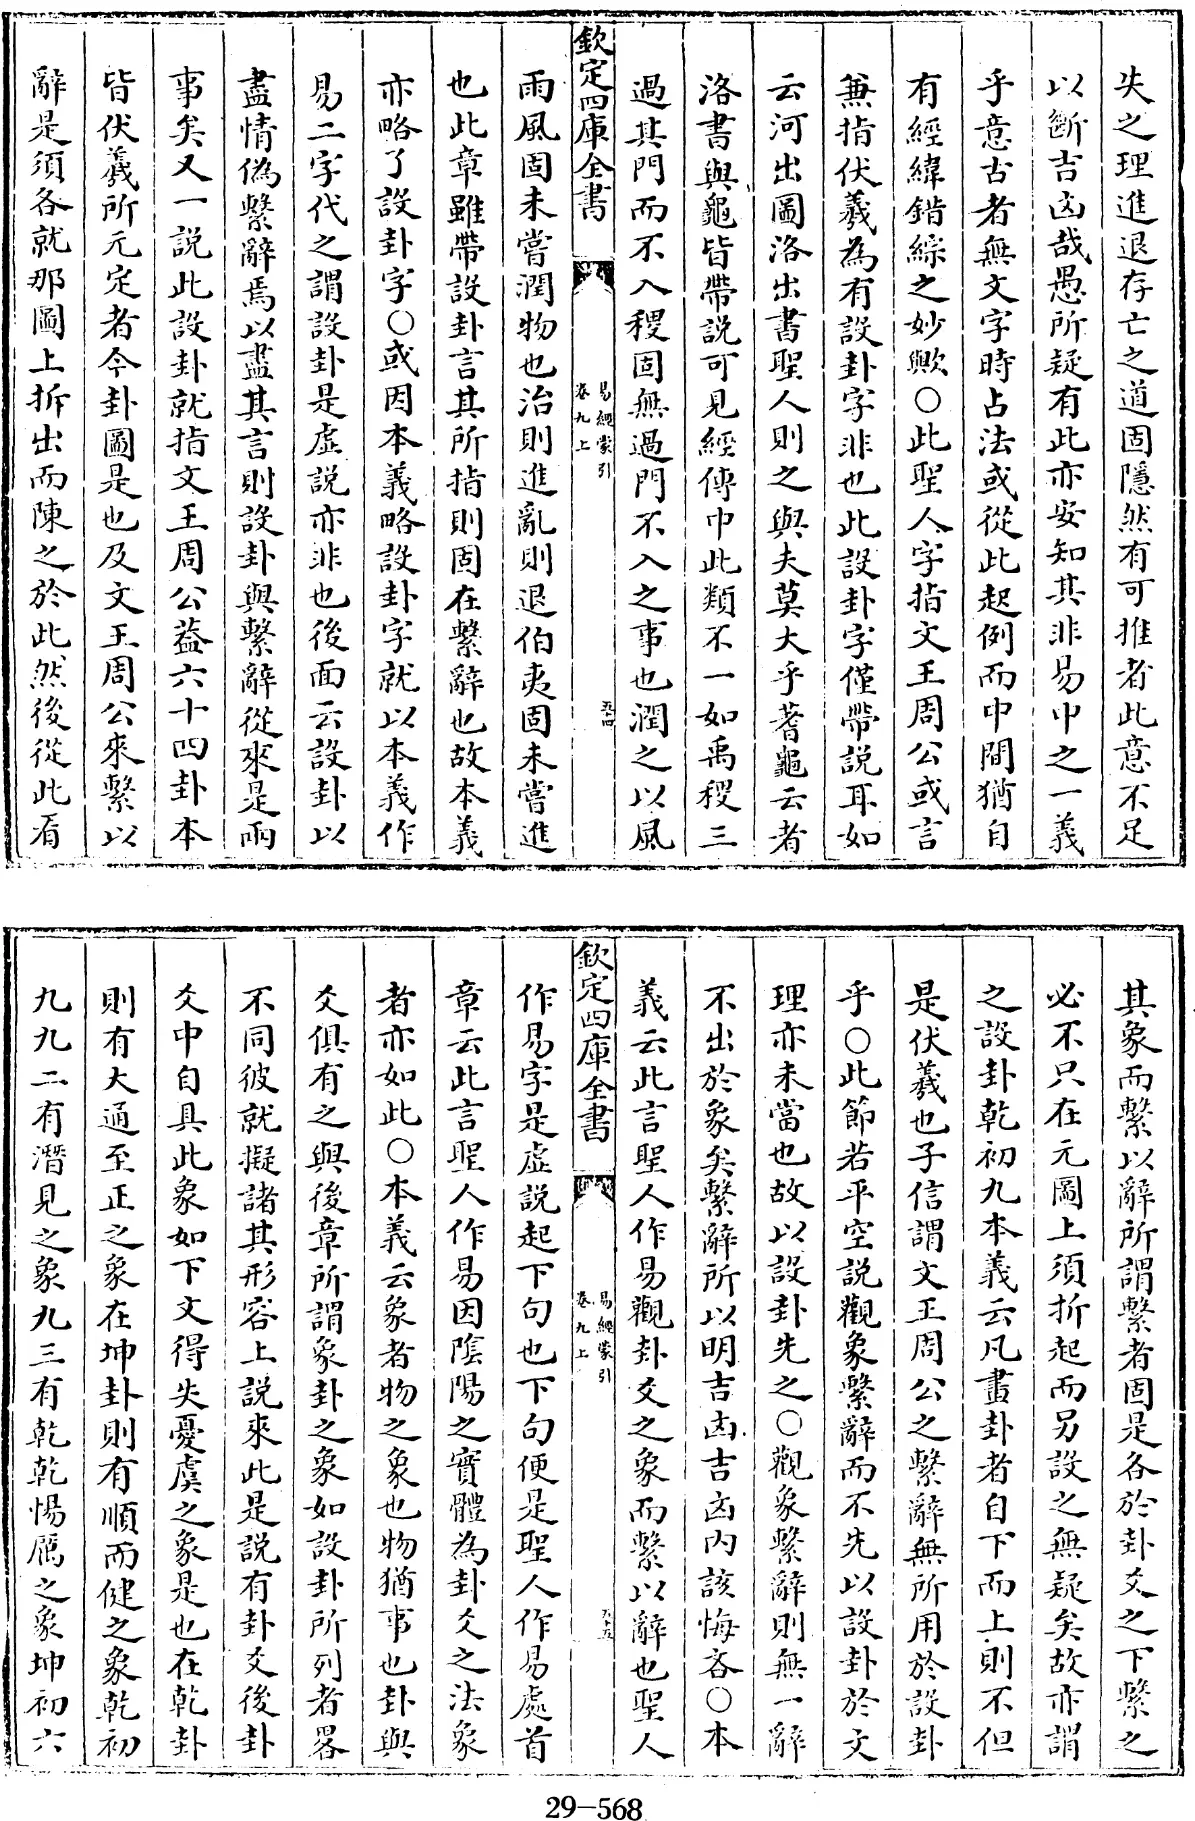 失之理進退存亡之道固隱然有可推者此意不足
以斷吉凶哉愚所疑有此亦安知其非易中之一義
乎意古者無文字時占法或從此起例而中間猶自
有經緯錯綜之妙歟○此聖人字指文王周公或言
兼指伏羲為有設卦字非也此設卦字僅帶説耳如
云河出圖洛出書聖人則之與夫莫大乎蓍龜云者
洛書與龜皆帶説可見經傳中此類不一如禹稷三
過其門而不入稷固無過門不入之事也潤之以風
欽定四庫全書
易經蒙引
卷九上
五十四
雨風固未嘗潤物也治則進亂則退伯夷固未嘗進
也此章雖帶設卦言其所指則固在繫辭也故本義
亦略了設卦字○或因本義略設卦字就以本義作
易二字代之謂設卦是虛説亦非也後面云設卦以
盡情偽繫辭焉以盡其言則設卦與繫辭從來是兩
事矣又一説此設卦就指文王周公葢六十四卦本
皆伏羲所元定者今卦圖是也及文王周公來繫以
辭是須各就那圖上拆出而陳之於此然後從此看
其象而繫以辭所謂繫者固是各於卦爻之下繫之
必不只在元圖上須折起而另設之無疑矣故亦謂
之設卦乾初九本義云凡畫卦者自下而上則不但
是伏羲也子信謂文王周公之繫辭無所用於設卦
乎○此節若平空説觀象繫辭而不先以設卦於文
理亦未當也故以設卦先之○觀象繫辭則無一辭
不出於象矣繫辭所以明吉凶吉凶内該悔吝○本
義云此言聖人作易觀卦爻之象而繫以辭也聖人
欽定四庫全書
易經蒙引
卷九上
五十五
作易字是虛説起下句也下句便是聖人作易處首
章云此言聖人作易因陰陽之實體為卦爻之法象
者亦如此○本義云象者物之象也物猶事也卦與
爻俱有之與後章所謂象卦之象如設卦所列者畧
不同彼就擬諸其形容上説來此是説有卦爻後卦
爻中自具此象如下文得失憂虞之象是也在乾卦
則有大通至正之象在坤卦則有順而健之象乾初
九九二有潛見之象九三有乾乾惕厲之象坤初六
29-568